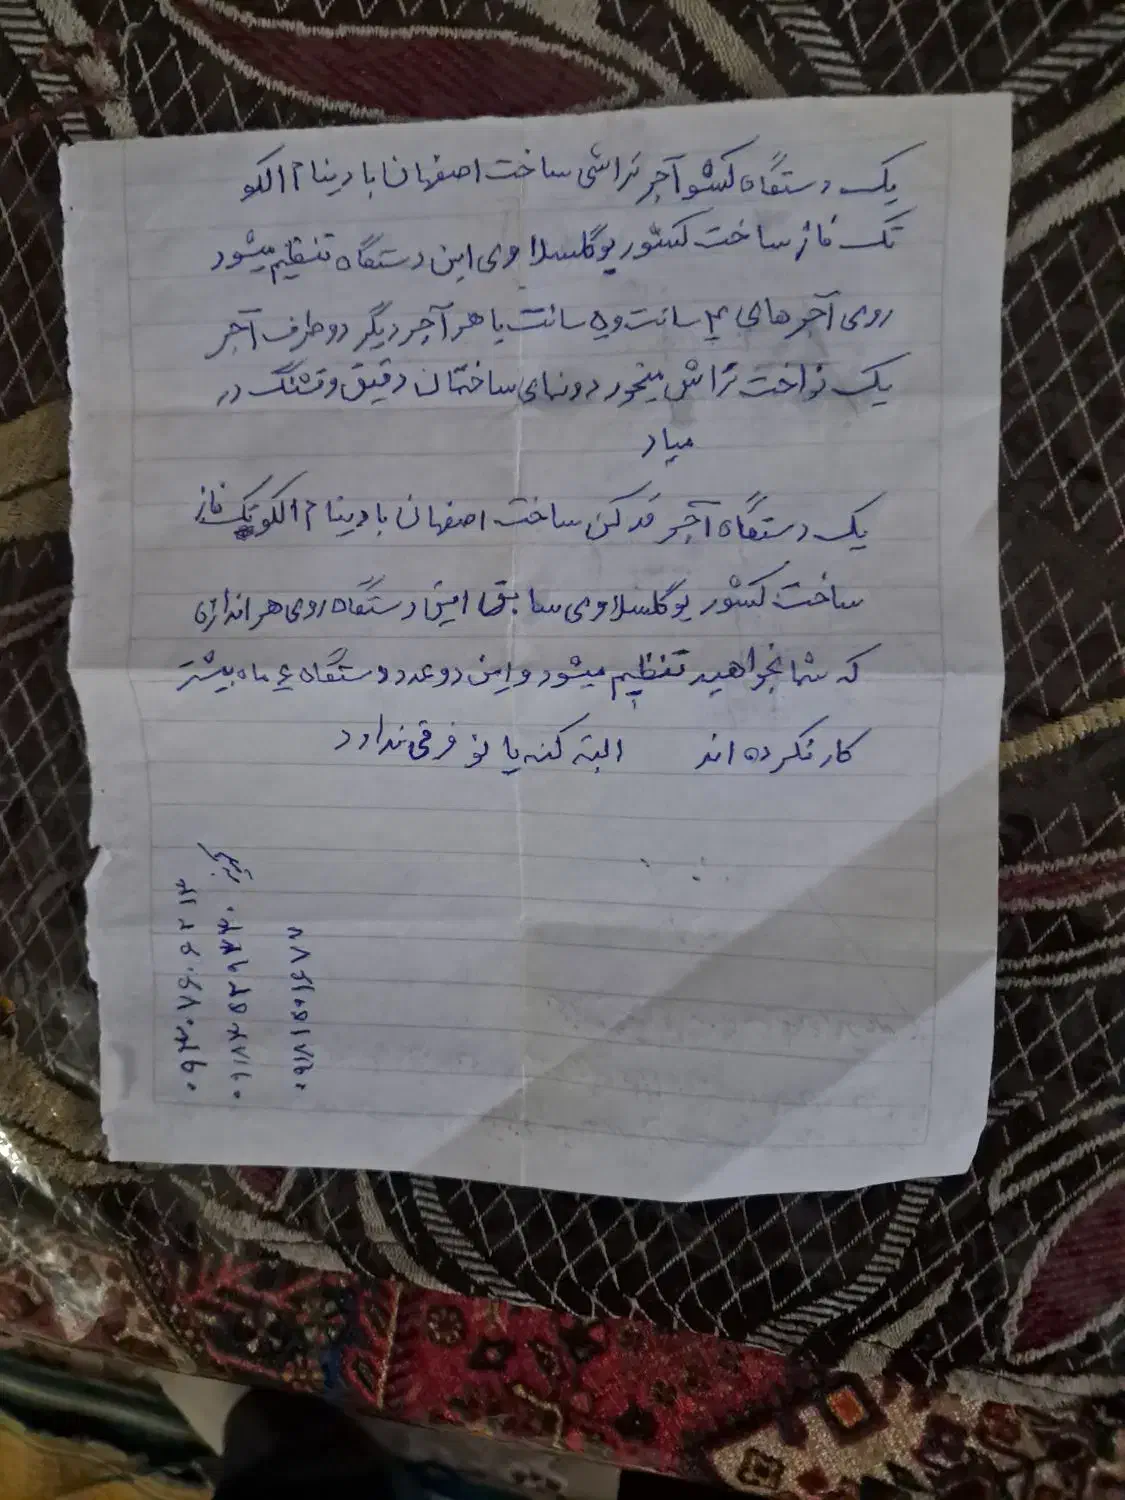 یک دستگاه کشو آجر تراشی ساخت اصفهان با دینام الکو
تک فاز ساخت کشور یوگلسلاوی این دستگاه تنظیم میشود
روی آجرهای ۴ سانت و ۵ سانت یا هر آجر دیگر دو طرف آجر
یک نواخت تراش میخورد ونمای ساختمان دقیق وقشنگ در
میاد
یک دستگاه آجر قد کن ساخت اصفهان با دینام الکو تک فاز
ساخت کشور یوگلسلاوی سابق این دستگاه روی هر اندازه
که شما بخواهید تنظیم میشود و این دو عدد دستگاه ۶ ماه بیشتر
کار نکرده اند البته کنه یا نو فرقی ندارد